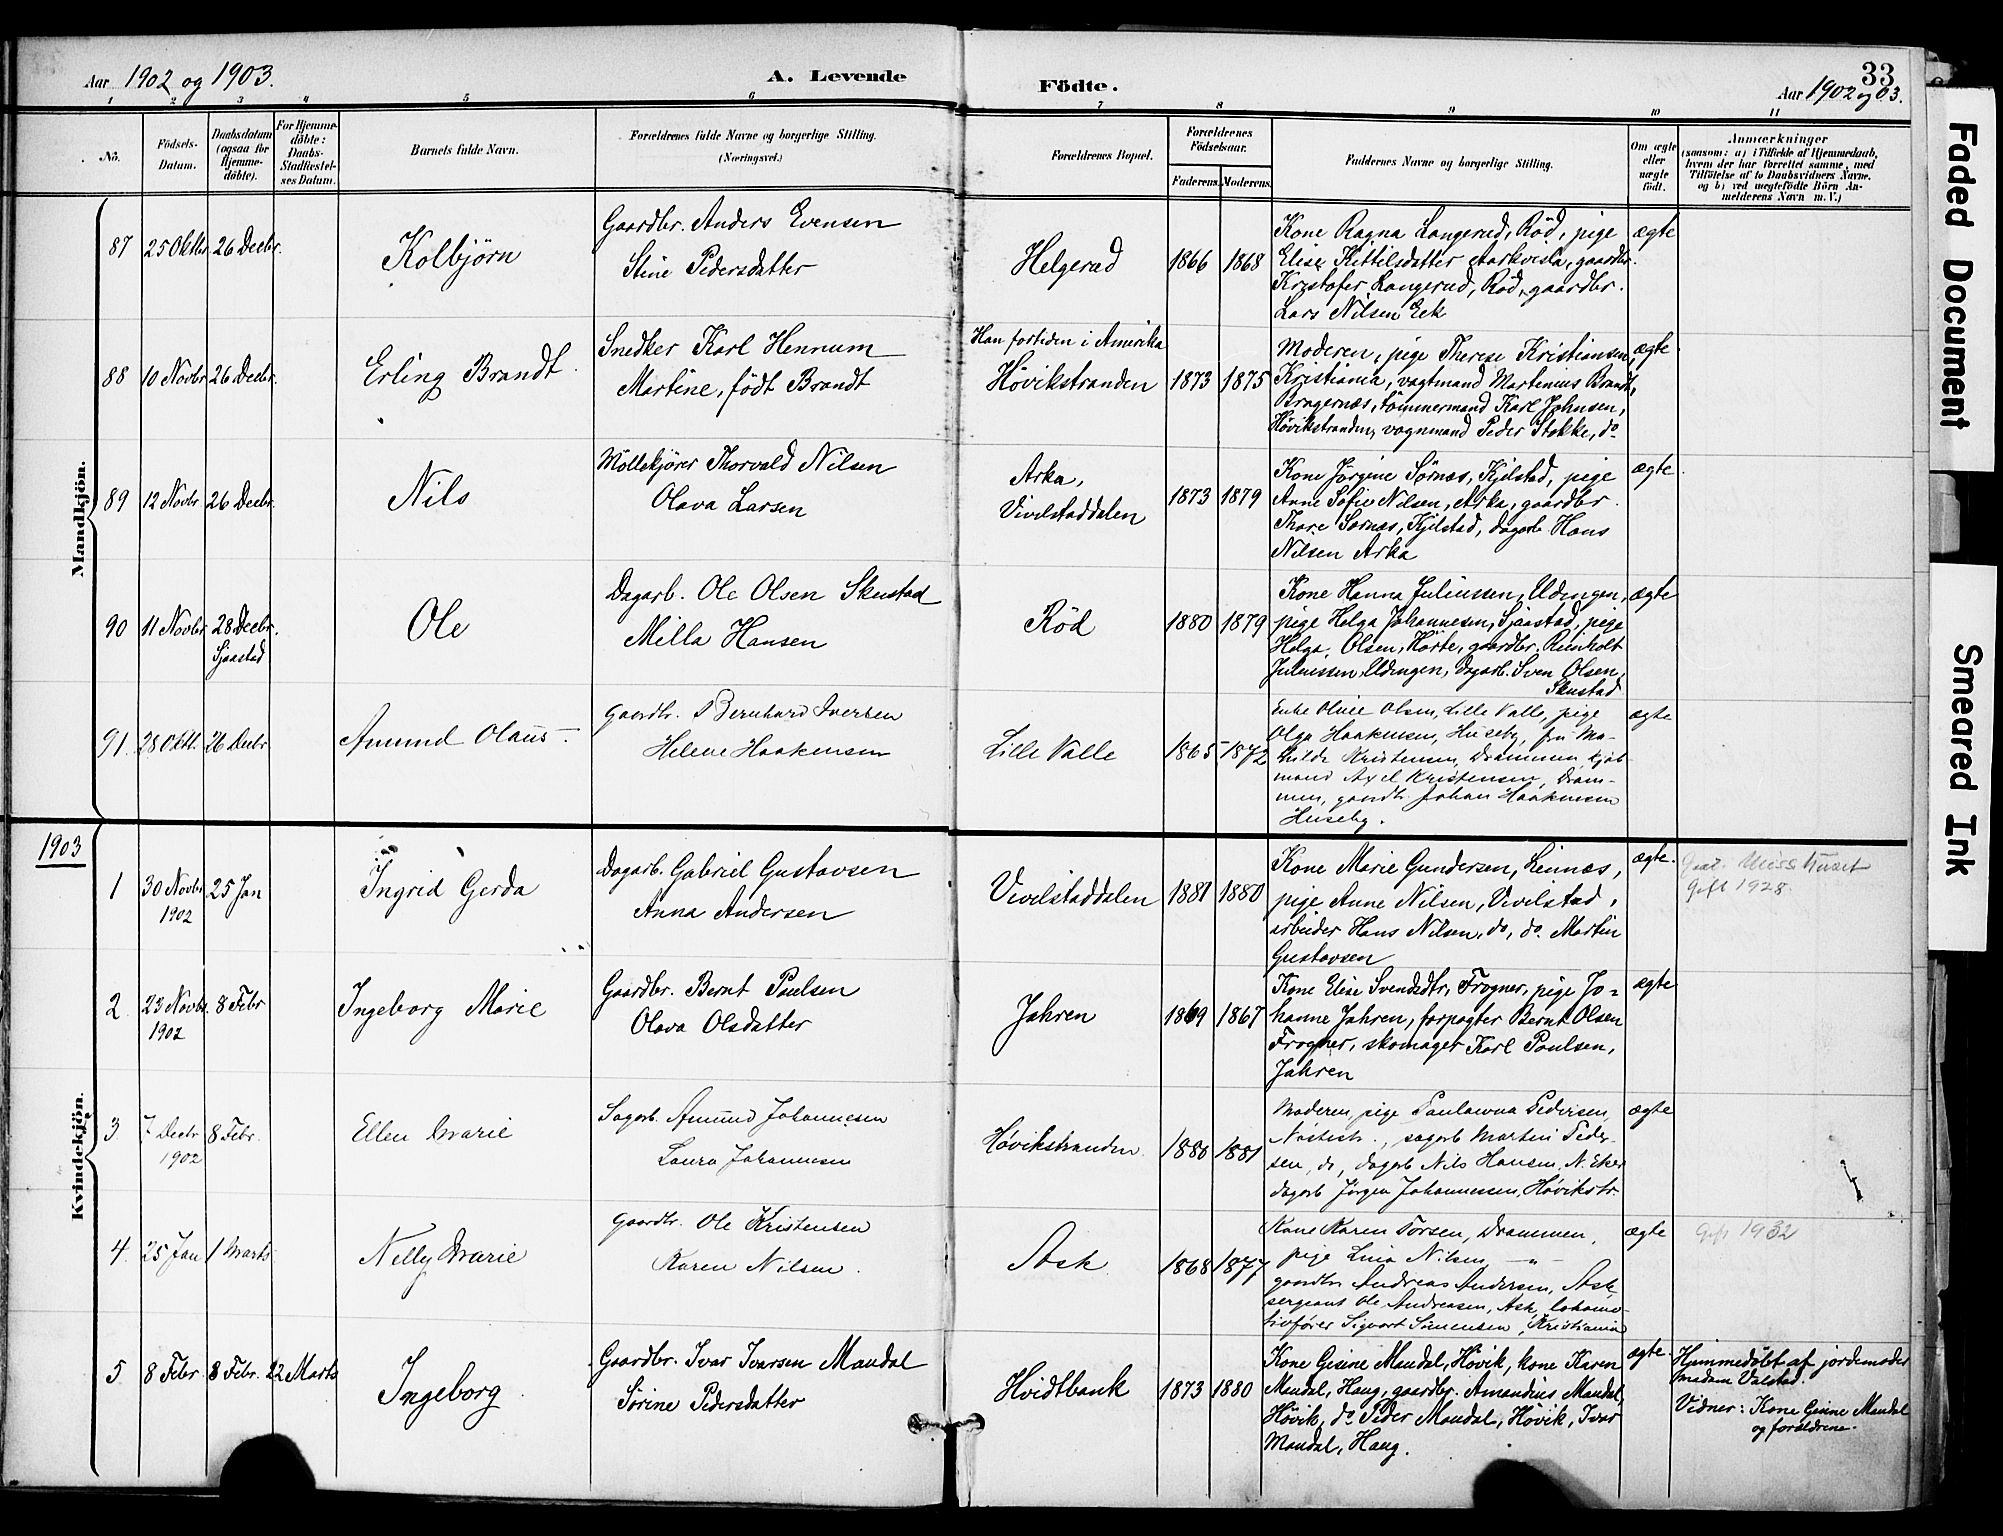 Aar 1902 og 1903.
A. Levende
Födte.
33
Aar 1902 og 03.
1 2 3 4 5 6 7 8 9 10 11
No.
Födsels-
Datum.
Daabsdatum
(ogsaa for
Hjemme-
döbte).
For Hjemme-
döbte:
Daabs-
Stadfæstel-
ses Datum.
Barnets fulde Navn.
Forældrenes fulde Navne og borgerlige Stilling.
(Næringsvei.)
Forældrenes Bopæl.
Forældrenes
Födselsaar.
Faderens.
Moderens.
Faddernes Navne og borgerlige Stilling.
Om ægte
eller
uægte
födt.
Anmærkninger
(saasom: a) i Tilfælde af Hjemmedaab,
hvem der har forrettet samme, med
Tilföielse af to Daabsvidners Navne.
og b) ved uægtefödte Börn An-
melderens Navn m. V.)
Mandkjön.
87
25 Oktbr
26 Decbr.
Kolbjörn
Gaardbr. Anders Evensen
Stine Pedersdatter
Helgerud
1866
1868
Kone Ragna Langerud, Röd, pige
Elise Kittilsdatter Aarkvisla, gaardbr.
Kristofer Langerud, Röd, gaardbr.
Lars Nilsen Eek
ægte
88
10 Novbr
26 Decbr.
Erling Brandt
Snedker Karl Hennum
Martine, födt Brandt
Han fortiden i Amerika
Høvikstranden
1873
1875
Moderen, pige Therese Kristiansen,
Kristiania, vagtmand Martinius Brandt,
Bragernæs, tömmermand Karl Johnsen,
Høvikstranden, vognmand Peder Stokke, do
ægte
89
12 Novbr
26 Decbr.
Nils
Möllekjörer Thorvald Nilsen
Olava Larsen
Arka,
Vivilstaddalen
1873
1879
Kone Jörgine Sørnæs, Kjilstad, pige
Anne Sofie Nilsen, Arka, gaardbr.
Thore Sørnæs, Kjilstad, dagarb Hans
Nilsen Arka
ægte
90
11 Novbr
28 Decbr.
Sjaastad
Ole
Dagarb. Ole Olsen Skustad
Milla Hansen
Röd
1880
1879
Kone Hanna Juliussen, Uldingen,
pige Helga Johannesen, Sjaastad, pige
Helga Olsen, Hörte, gaardbr. Reinholt
Juliussen, Uldingen, dagarb. Sven Olsen,
Skustad
ægte
91
28 Oktb.
26 Decbr
Amund Olaus
Gaardbr. Bernhard Iversen
Helene Haakensen
Lille Valle
1865
1872
Enke Oline Olsen, Lille Valle, pige
Olga Haakensen, Huseby, fru Ma-
thilde Kristensen, Drammen, kjöb-
mand Axel Kristensen, Dram-
men, gaardbr. Johan Haakensen
Huseby.
ægte
1903
Kvindekjön.
1
30 Novbr
1902
25 Jan
Ingrid Gerda
Dagarb. Gabriel Gustavsen
Anna Andersen
Vivilstaddalen
1881
1880
Kone Marie Gundersen, Linnæs,
pige Anne Nilsen, Vivilstad,
arbeider Hans Nilsen, do, do. Martin
Gustavsen
ægte.
Gift 1928.
2
23 Novbr.
1902
8 Febr
Ingeborg Marie
Gaardbr. Bernt Paulsen
Olava Olsdatter
Jahren
1869
1867
Kone Elise Svendsdtr, Frogner, pige Jo-
hanne Jahren, forpagter Bernt Olsen
Frogner, skomager Karl Paulsen,
Jahren
ægte
3
7 Decbr
1902
8 Febr.
Ellen Marie
Sagarb. Amund Johannesen
Laura Johannesen
Høvikstranden
1880
1881
Moderen, pige Paulowna Pedersen
Nöstestr., sagarb Martin Peder-
sen, do, dagarb Nils Hansen, N. Eker
dagarb Jörgen Johannessen, Høvikstr.
ægte
4
25 Jan
1 Marts
Nelly Marie
Gaardbr. Ole Kristensen
Karen Nilsen
Ask
1868
1877
Kone Karen Torsen, Drammen,
pige Lina Nilsen —"—
gaardbr Andreas Andersen, Ask,
sergeant Ole Andreasen, Ask, lokomo-
tivförer Sigvart Simensen, Kristiania
ægte
Gift 1932
5
8 Febr
8 Febr.
22 Marts
Ingeborg
Gaardbr. Ivar Ivarsen Mandal
Sörine Pedersdatter
Hvidtbank
1873
1880
Kone Gisine Mandal, Hövik, kone Karen
Mandal, Haug, gaardbr. Amandius Mandal,
Hövik, do Peder Mandal, Hövik, Ivar
Mandal, Haug.
ægte.
Hjemmedöbt af jordemoder
madam Valstad.
Vidner: Kone Gisine Mandal
og forældrene.
Faded Document
Smeared Ink